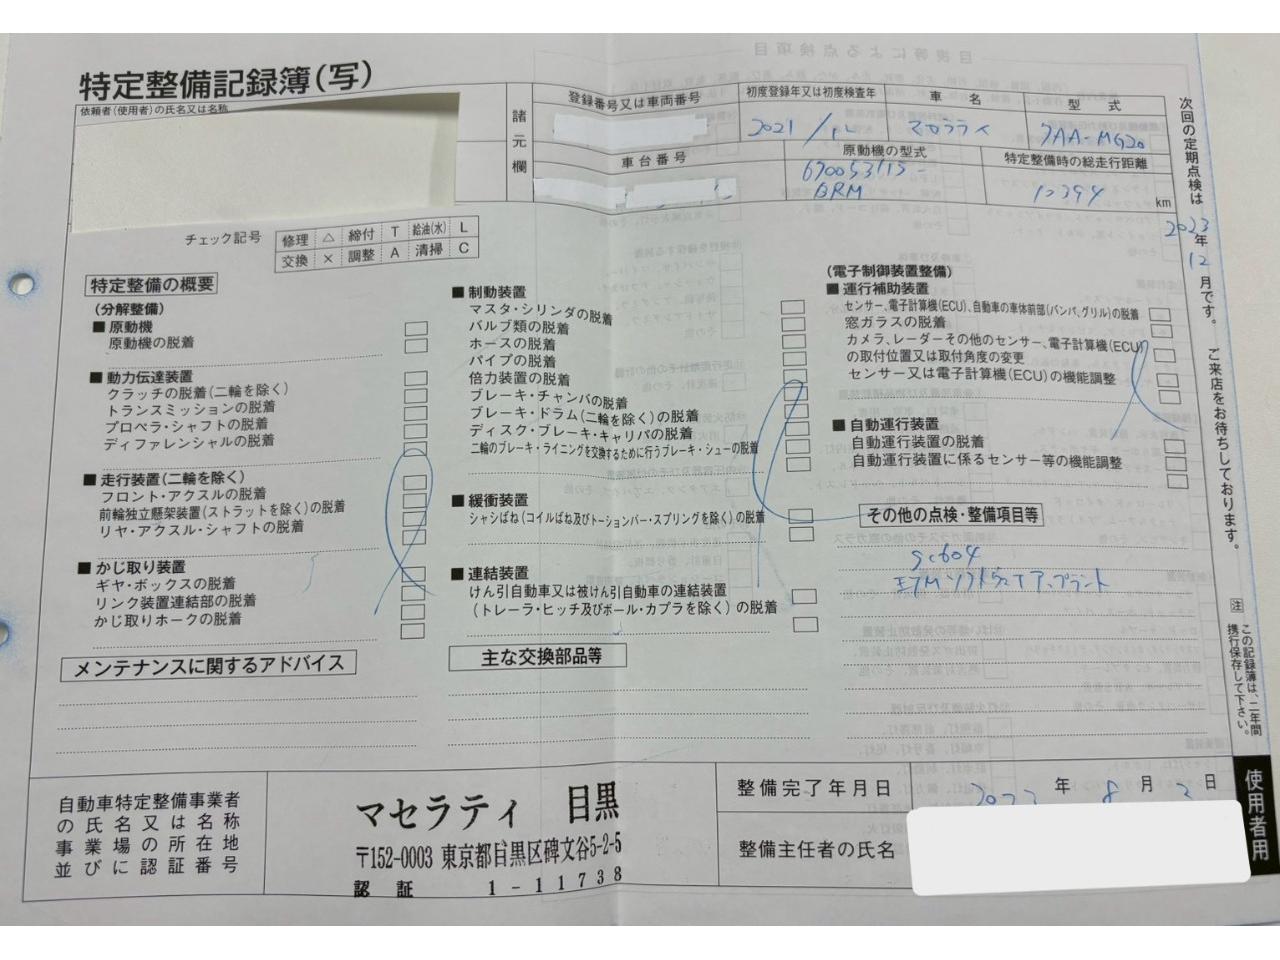 特定整備記録簿(写)
依頼者(使用者)の氏名又は名称
諸元欄
登録番号又は車両番号
初度登録年又は初度検査年
車名
型式
2021/12
マセラティ
7AA-MG20
車台番号
原動機の型式
特定整備時の総走行距離
670053115-
BRM
10394 km
次回の定期点検は 2023年 12月です。ご来店をお待ちしております。
チェック記号
修理 △ 締付 T 給油(水) L
交換 × 調整 A 清掃 C
特定整備の概要
(分解整備)
■ 原動機
原動機の脱着
■ 動力伝達装置
クラッチの脱着(二輪を除く)
トランスミッションの脱着
プロペラ・シャフトの脱着
ディファレンシャルの脱着
■ 走行装置(二輪を除く)
フロント・アクスルの脱着
前輪独立懸架装置(ストラットを除く)の脱着
リヤ・アクスル・シャフトの脱着
■ かじ取り装置
ギヤ・ボックスの脱着
リンク装置連結部の脱着
かじ取りホークの脱着
■ 制動装置
マスタ・シリンダの脱着
バルブ類の脱着
ホースの脱着
パイプの脱着
倍力装置の脱着
ブレーキ・チャンバの脱着
ブレーキ・ドラム(二輪を除く)の脱着
ディスク・ブレーキ・キャリパの脱着
二輪のブレーキ・ライニングを交換するために行うブレーキ・シューの脱着
■ 緩衝装置
シャシばね(コイルばね及びトーションバー・スプリングを除く)の脱着
■ 連結装置
けん引自動車又は被けん引自動車の連結装置
(トレーラ・ヒッチ及びボール・カプラを除く)の脱着
(電子制御装置整備)
■ 運行補助装置
センサー、電子計算機(ECU)、自動車の車体前部(バンパ、グリル)の脱着
窓ガラスの脱着
カメラ、レーダーその他のセンサー、電子計算機(ECU)
の取付位置又は取付角度の変更
センサー又は電子計算機(ECU)の機能調整
■ 自動運行装置
自動運行装置の脱着
自動運行装置に係るセンサー等の機能調整
その他の点検・整備項目等
gc604
メンテナンスに関するアドバイス
主な交換部品等
注 この記録簿は、二年間
携行保存して下さい。
使用者用
自動車特定整備事業者
の氏名又は名称
事業場の所在地
並びに認証番号
マセラティ 目黒
〒152-0003 東京都目黒区碑文谷5-2-5
認証 1-11738
整備完了年月日
年 8月 日
整備主任者の氏名